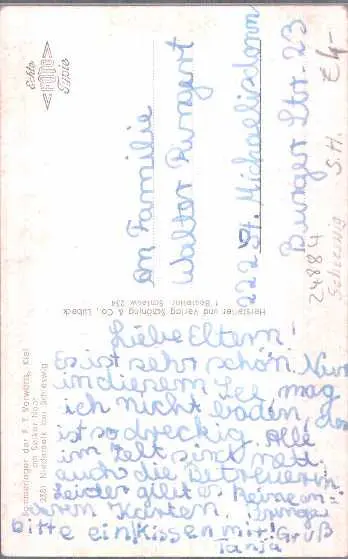 Liebe Eltern!
Es ist sehr schön. Nur
in diesem See mag
ich nicht baden, das
ist so dreckig. Alle
im Zelt sind nett
auch die Betreuerin
Leider gibt es keine
Karten.
bitte ein Kissen mit! Gruß
Tanja
An Familie
Walter
222 St. Michaelisdonn
Burger Str. 23
24884
S.H.
Schleswig
Echte
FOTO
Hersteller und Verlag Schöning & Co., Lübeck
Sommerlager der F. T. Vorwärts, Kiel
am Selker Noor
2381 Niederselk bei Schleswig